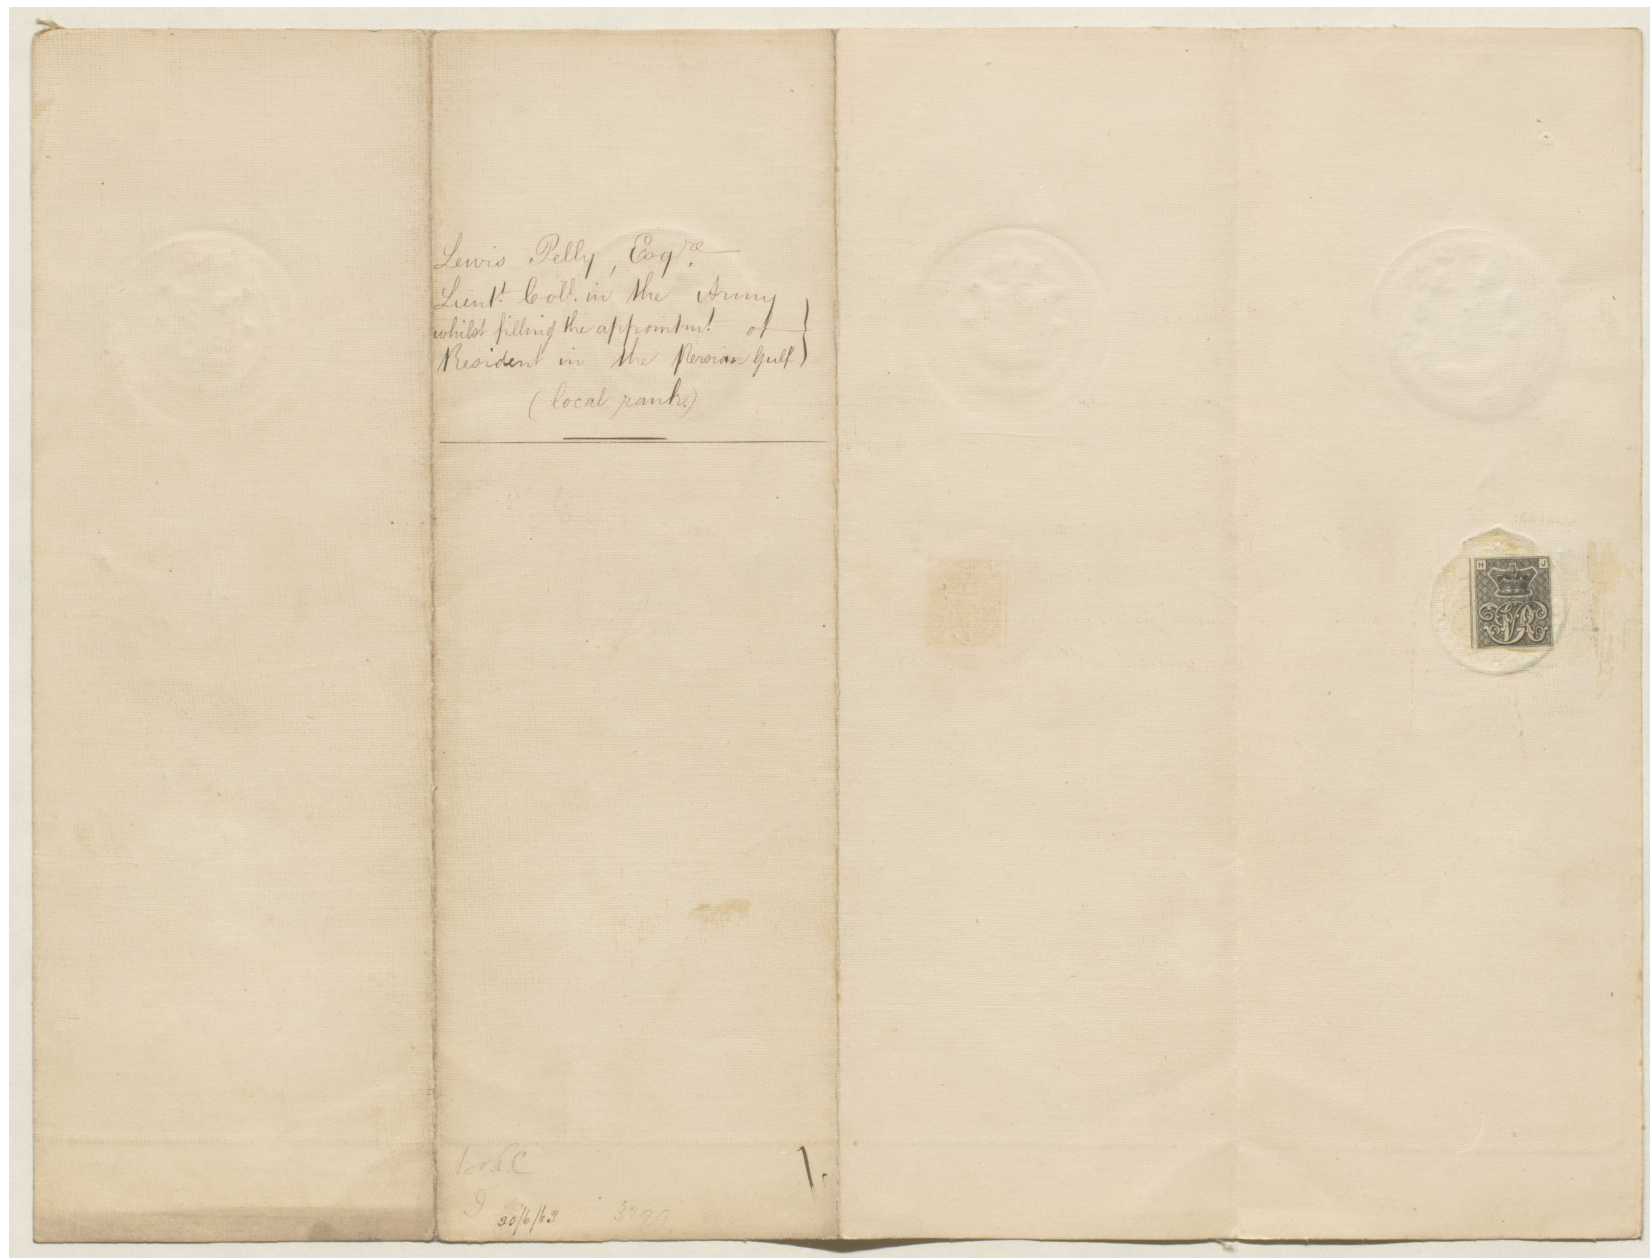 Lewis Pelly, Esqre.
Lieut. Coll. in the Army
whilst filling the appointmt. of
Resident in the Persian Gulf
(local rank.)
H J
VR
30/6/63